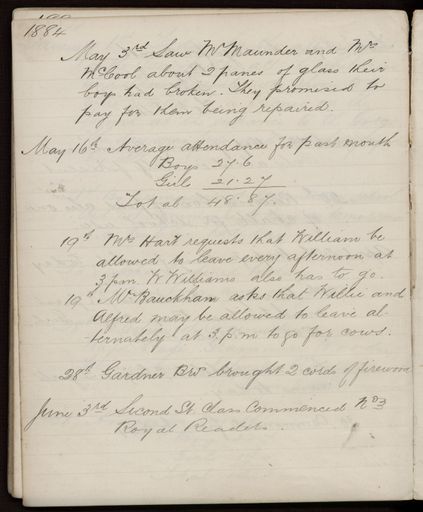 1884
May 3rd Saw Mr Maunder and Mrs
McCool about 2 panes of glass their
boys had broken. They promised to
pay for them being repaired.
May 16th Average attendance for past month
Boys 27.6
Girls 21.27
Total 48.87.
19th Mrs Hart requests that William be
allowed to leave every afternoon at
3 p.m. W. Williams also has to go.
19th Mr Bauckham asks that Willie and
Alfred may be allowed to leave al-
ternately at 3.p.m to go for cows.
28th Gardner Bros brought 2 cords of firewood
June 3rd Second St. Class Commenced No 3
Royal Readers